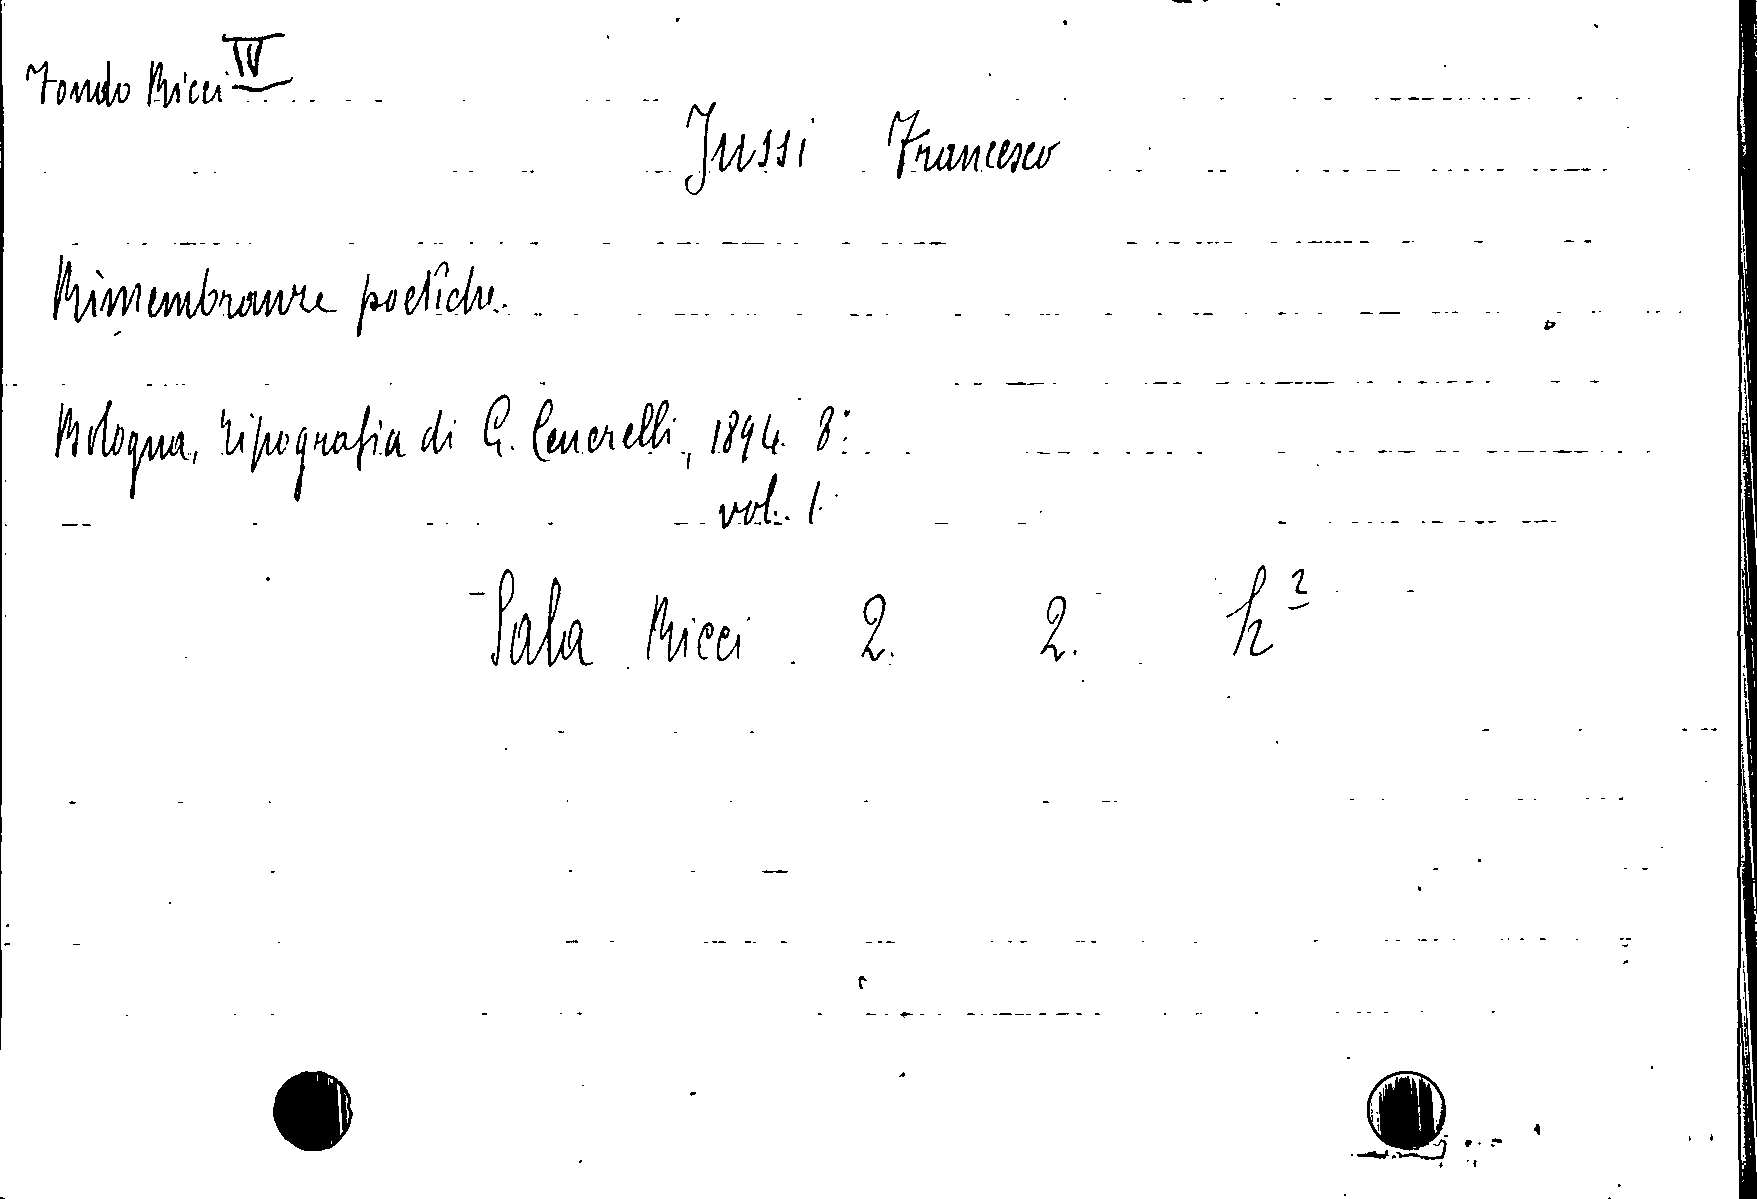 Fondo Ricci IV
Jussi Francesco
Rimembranze poetiche.
Bologna, tipografia di G. Cenerelli, 1894. 8:
vol. 1.
Sala Ricci 2. 2. h²